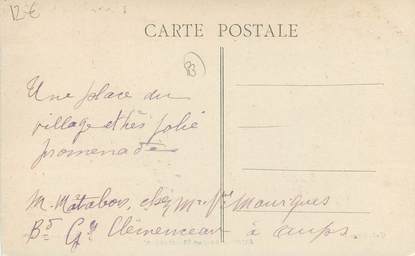 12 €
CARTE POSTALE
83
Une place du
village et très jolie
promenade
M. Matabon, chez Mr Manigues
Bd Gs Clémenceau à Aups.